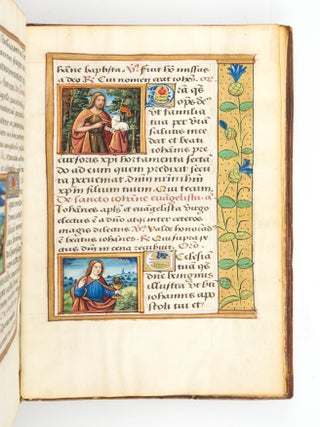 hane baptista. V. Fuit ho missus
a deo R. Cui nomen erat iohes. or.
ra qs
ops de
ut familia
tua per via
salutis ince
dat et beati
iohanis pre
cursoris xpi hortamenta secta
do ad eum quem predixit secu
ra perveniat dnm nrm ihm
xpm filium tuum Qui tecum
De sancto iohane evagelista. a
Iohanes apls et evagelista virgo
electus e a dno atqr inter ceteros
magis dilectus V. Valde honorad
e beatus iohanes. R. Qui supra pe
ctus dni in cena recubuit. Oro.
Cclesia
tua qs
dne benignus
illustra ut bti
iohannis apo
stoli tui et